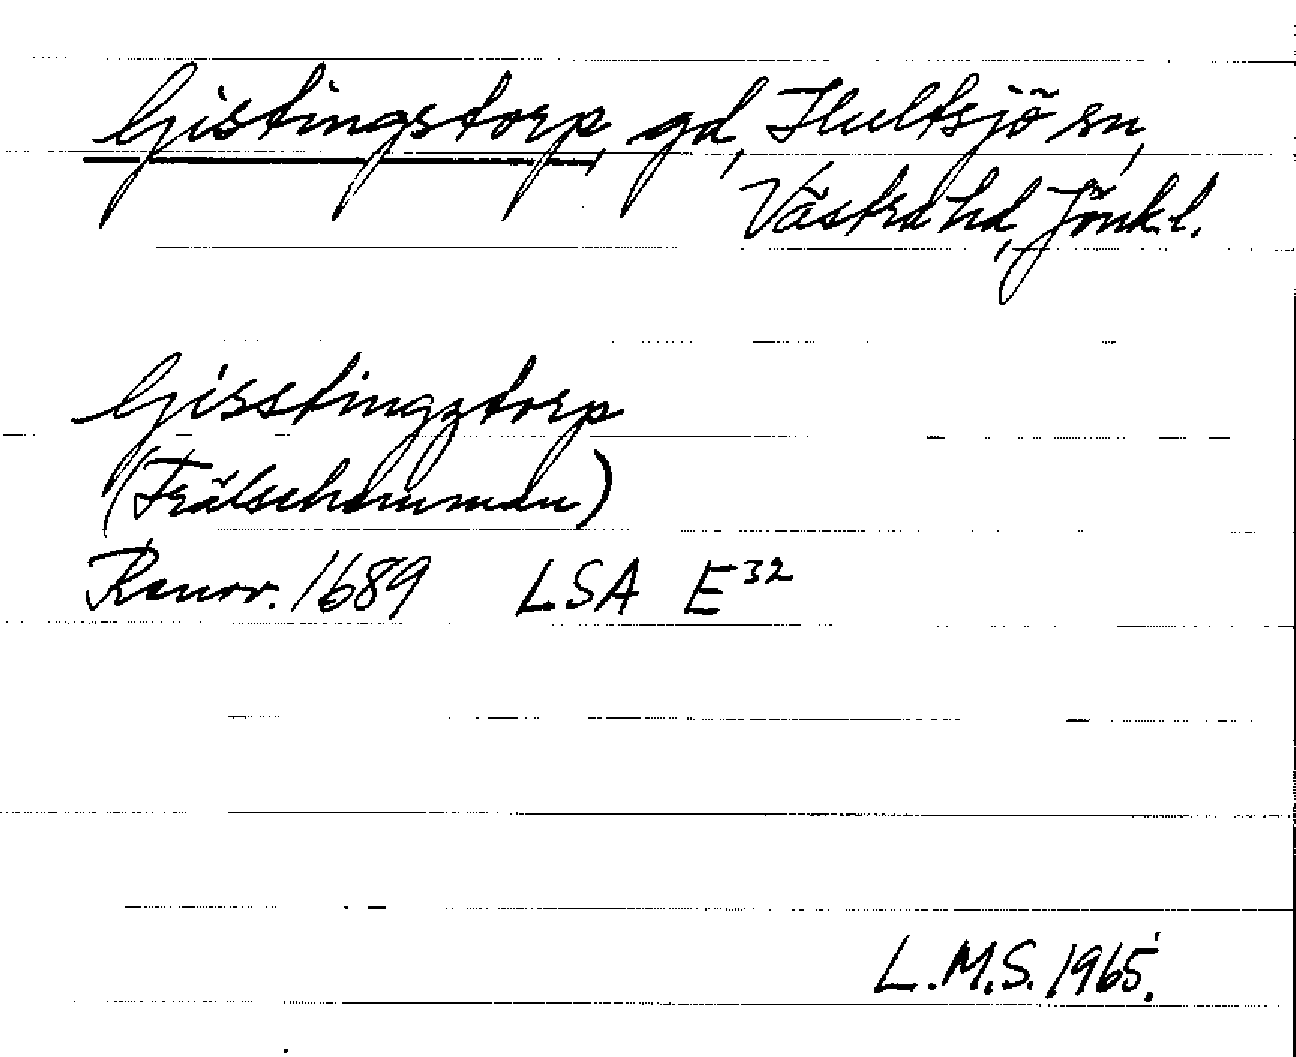 Gistingstorp, gd, Hultsjö sn,
Västra hd, Jönk.l.
Gisstingztorp
(Frälsehemman)
Renov. 1689 LSA E32
L.M.S. 1965.